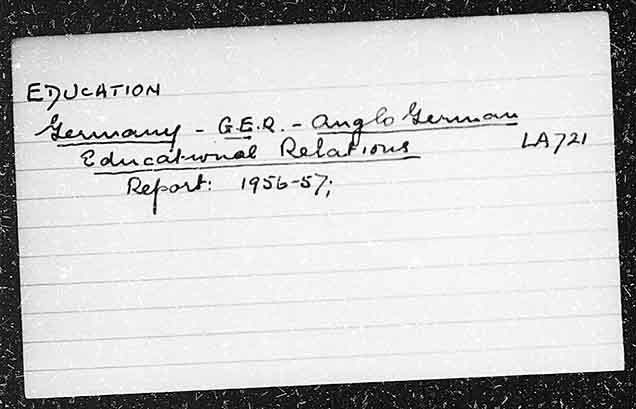 EDUCATION
Germany - G.E.R. - Anglo German
Educational Relations LA721
Report: 1956-57;